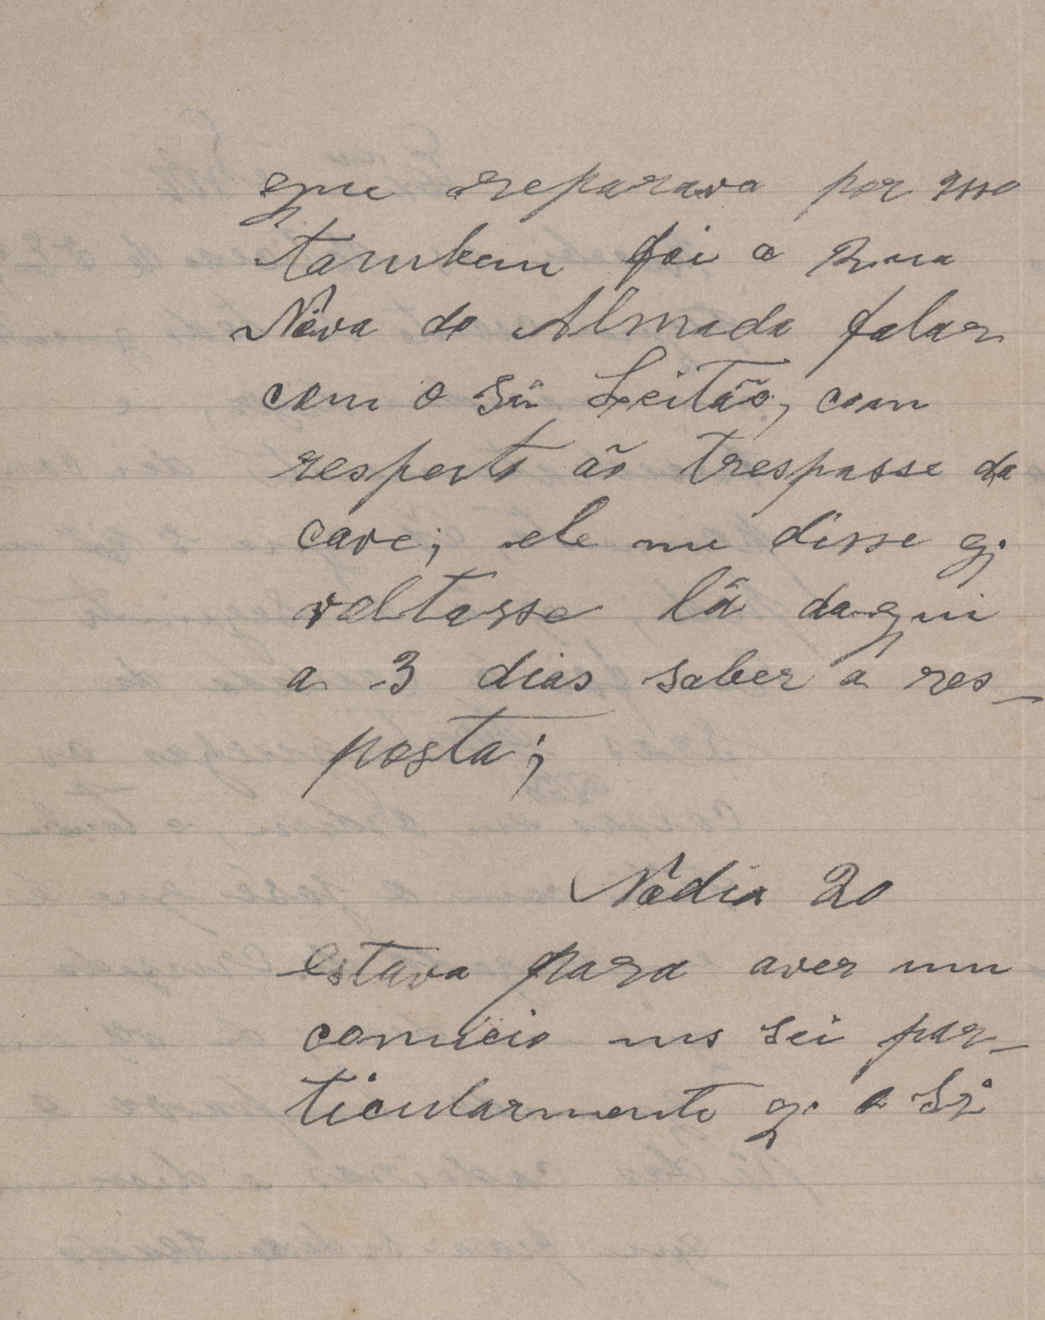 que reparava por isso
tambem foi a Rua
Nova do Almada falar
com o Sñr Leitão, com
respeito ão trespasse da
cave; ele me disse q.
voltasse lá daqui
a 3 dias saber a res-
posta;
No dia 20
estava para aver um
comicio mas sei par-
ticularmente q. o Sr